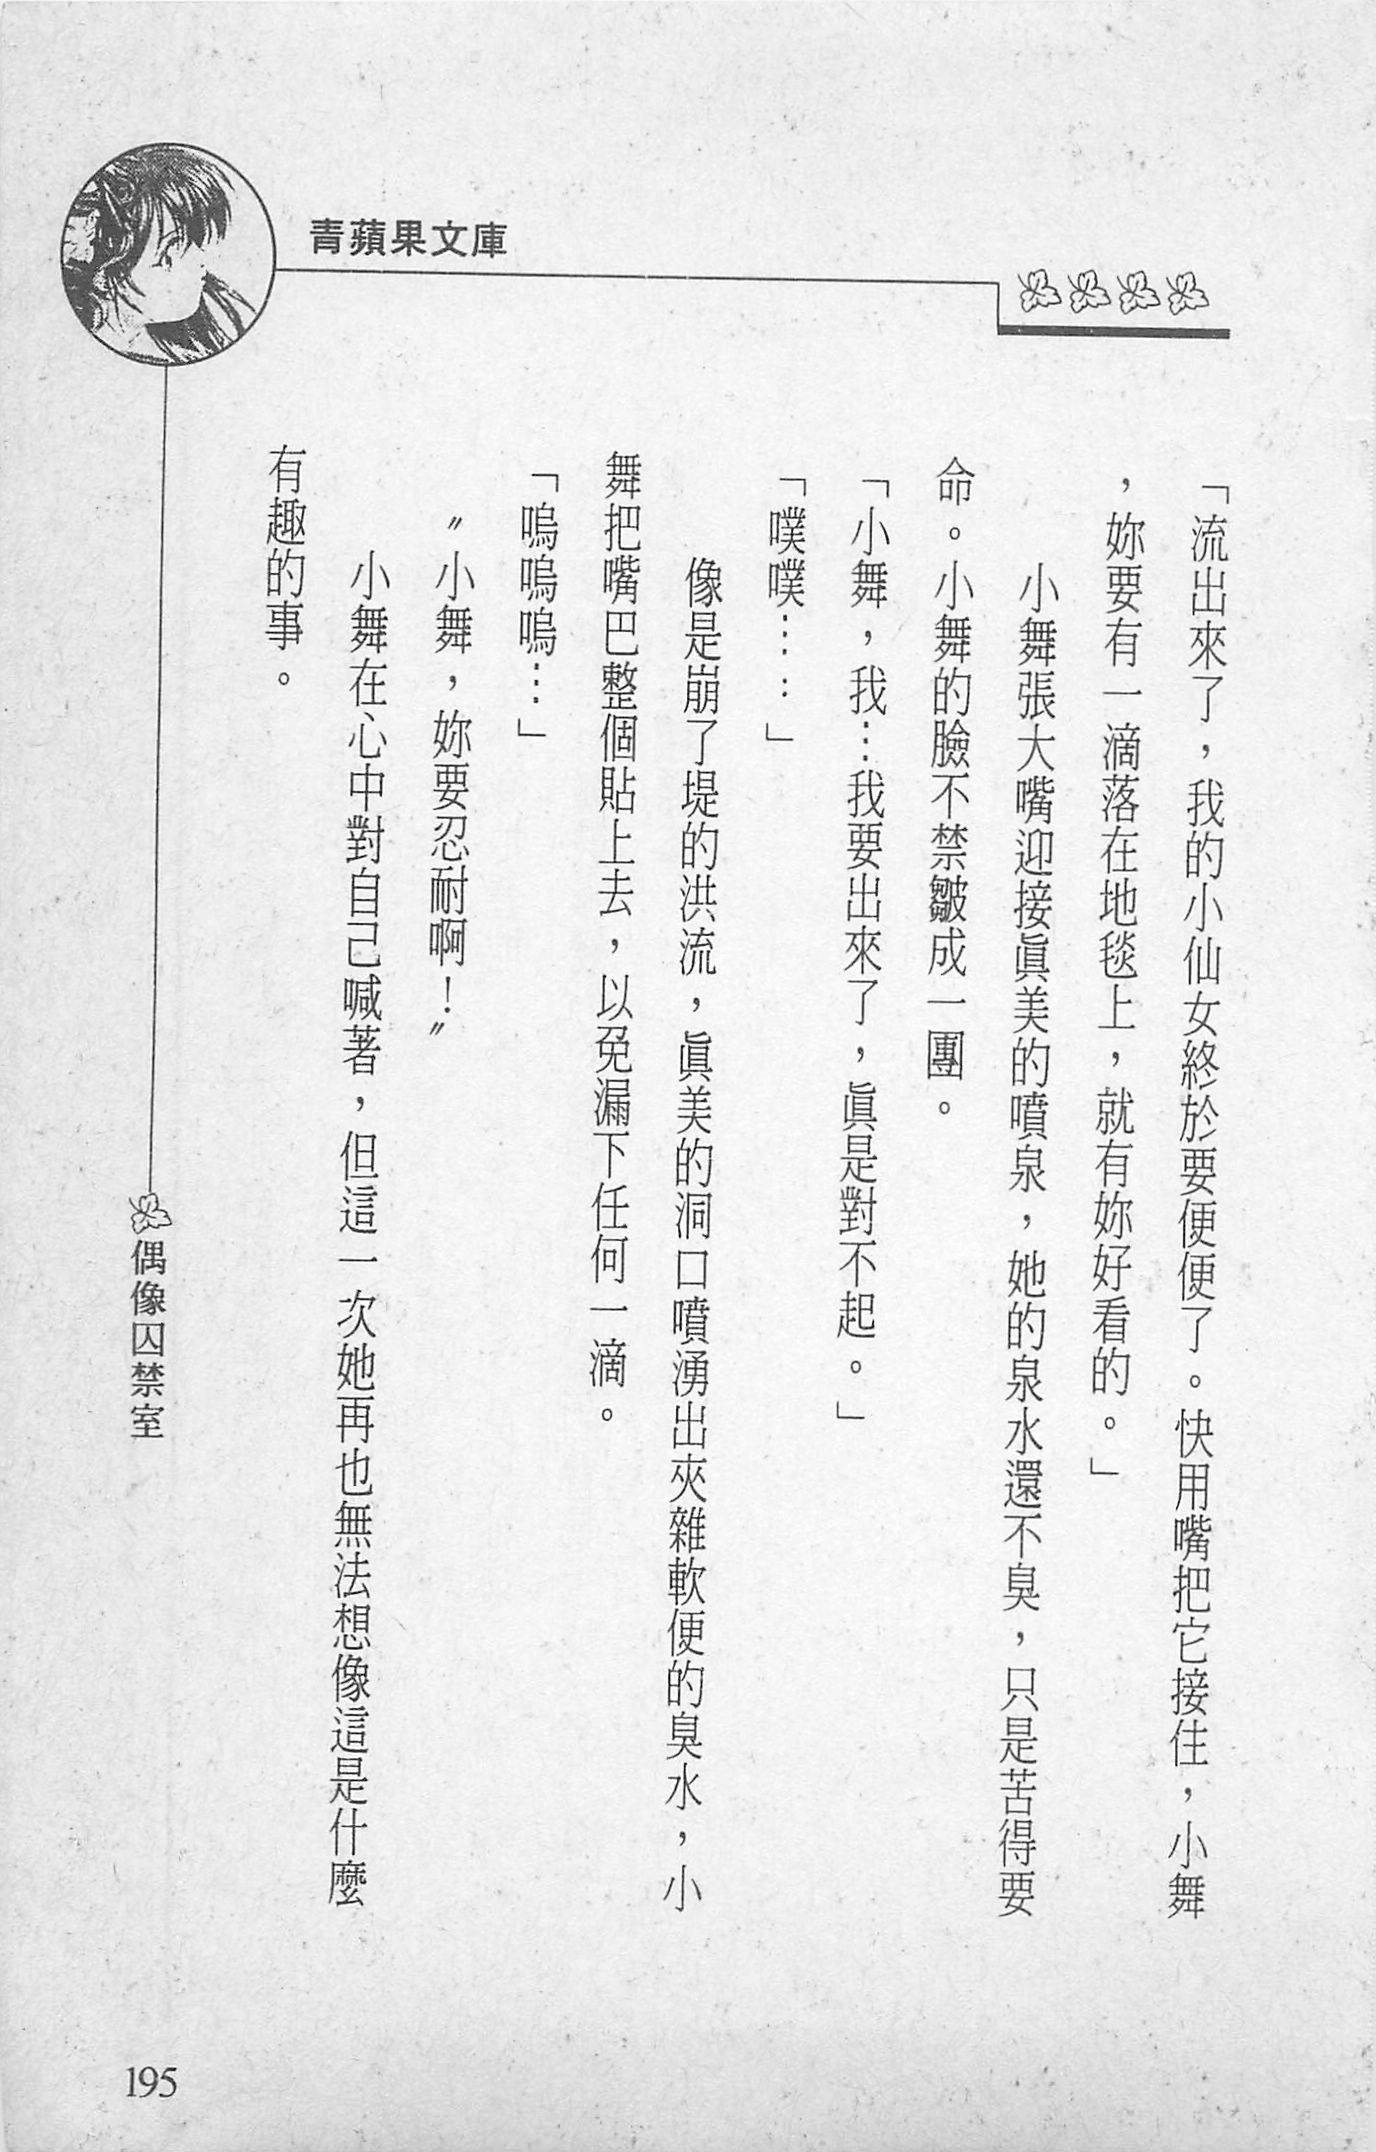 青蘋果文庫
「流出來了,我的小仙女終於要便便了。快用嘴把它接住,小舞
,妳要有一滴落在地毯上,就有妳好看的。」
小舞張大嘴迎接眞美的噴泉,她的泉水還不臭,只是苦得要
命。小舞的臉不禁皺成一團。
「小舞,我…我要出來了,眞是對不起。」
「噗噗……」
像是崩了堤的洪流,眞美的洞口噴湧出夾雜軟便的臭水,小
舞把嘴巴整個貼上去,以免漏下任何一滴。
「嗚嗚嗚…」
〝小舞,妳要忍耐啊!〞
小舞在心中對自己喊著,但這一次她再也無法想像這是什麼
有趣的事。
偶像囚禁室
195